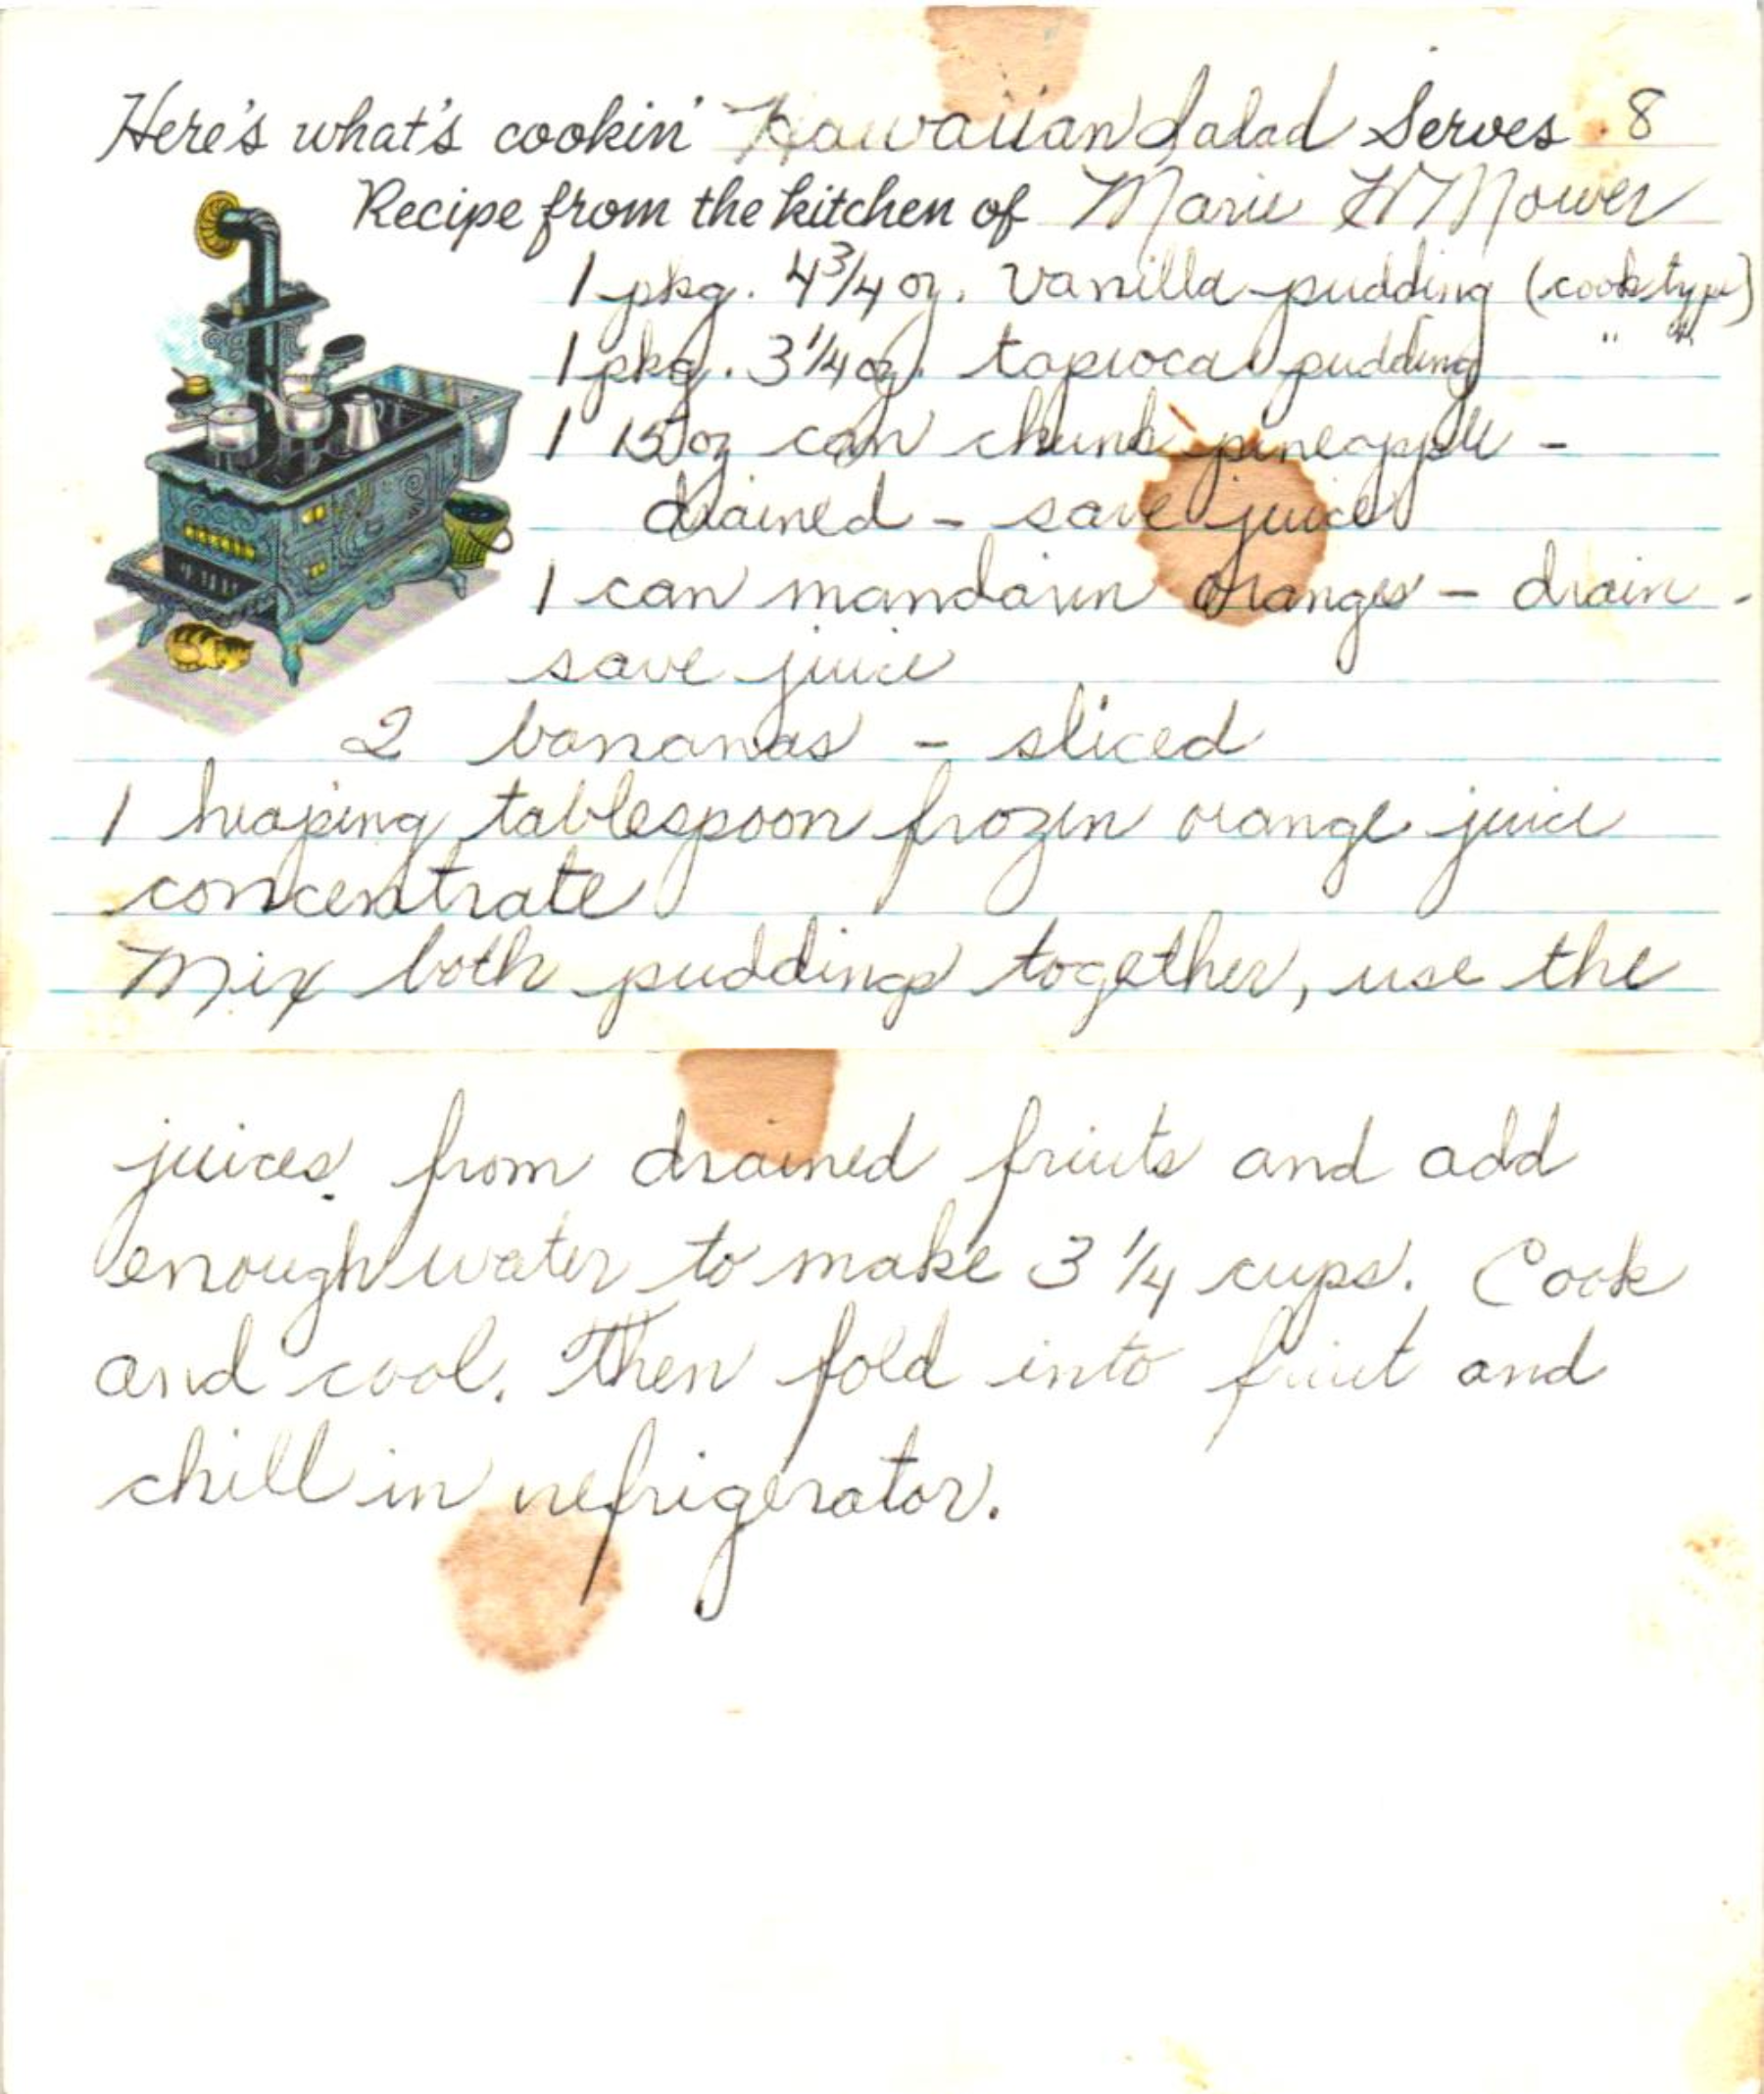 Here's what's cookin' Hawaiian Salad Serves 8
Recipe from the kitchen of Marie W Mower
1 pkg. 4 3/4 oz. Vanilla pudding (cook type)
1 pkg. 3 1/4 oz. tapioca pudding " "
1 15 oz can chunk pineapple -
drained - save juice
1 can mandarin oranges - drain -
save juice
2 bananas - sliced
1 heaping tablespoon frozen orange juice
concentrate
Mix both puddings together, use the
juices from drained fruits and add
enough water to make 3 1/4 cups. Cook
and cool. Then fold into fruit and
chill in refrigerator.